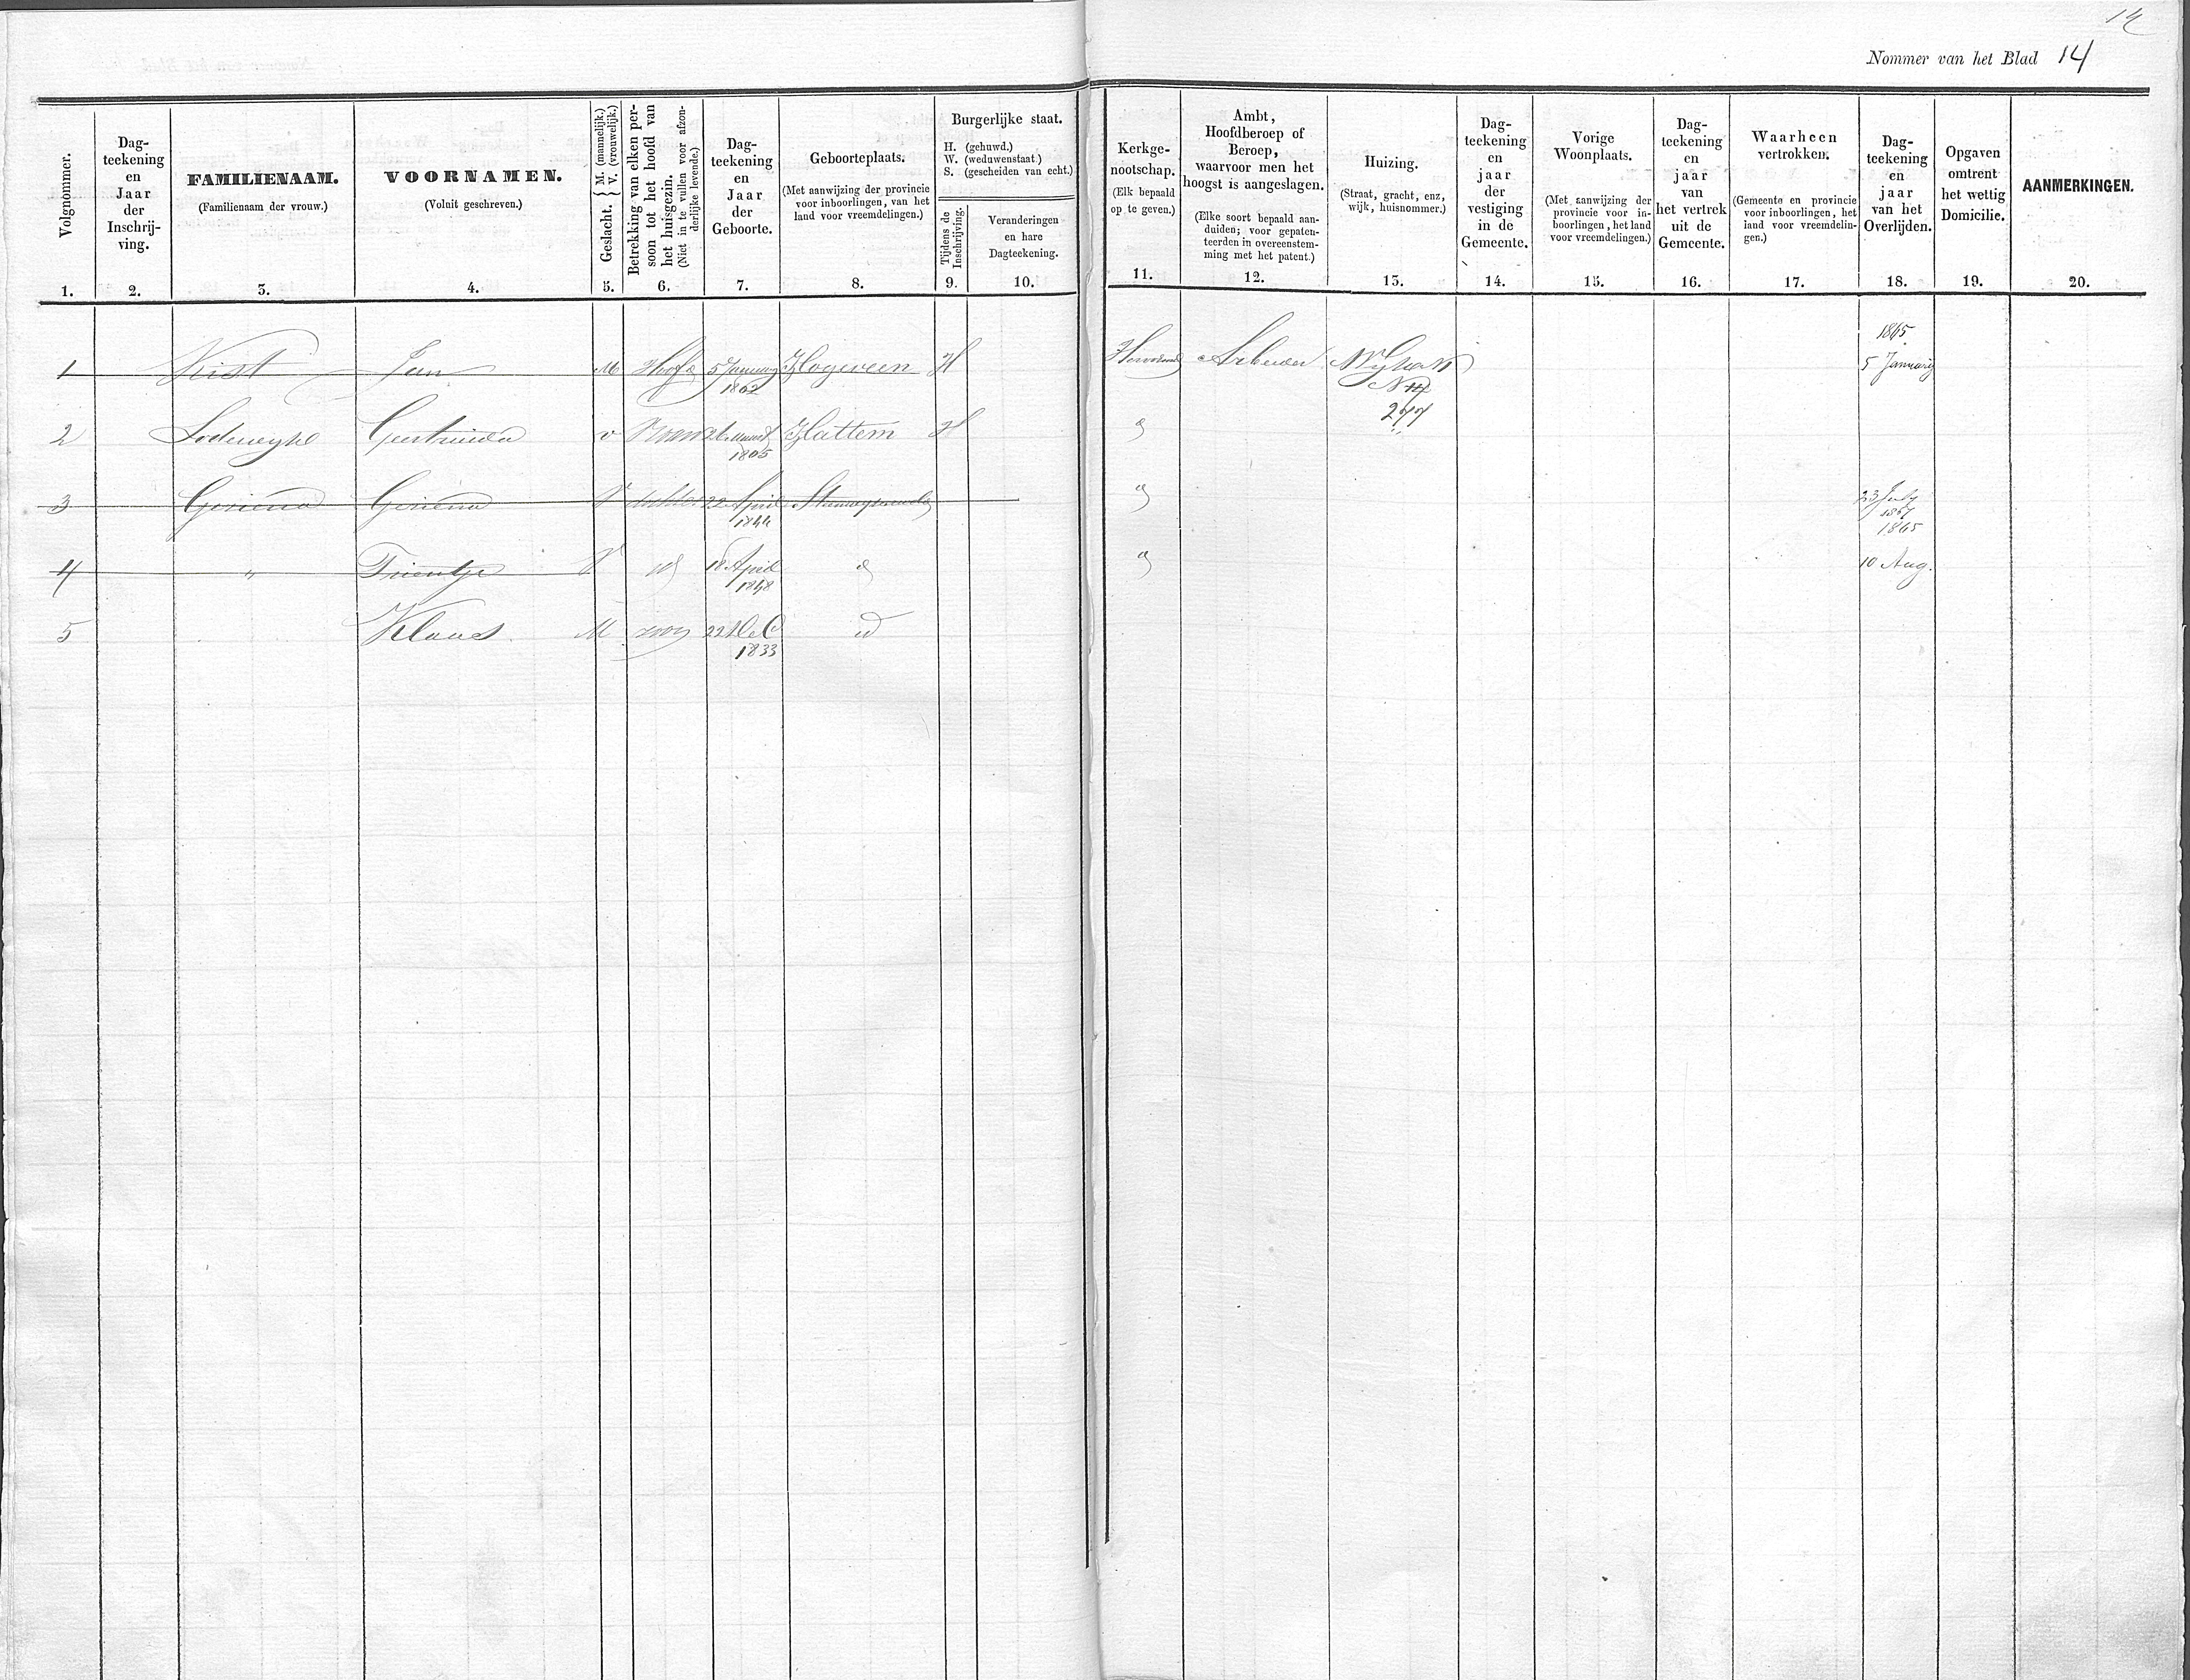 14
Nommer van het Blad 14
Volgnommer.
1.
Dag-
teekening
en
Jaar
der
Inschrij-
ving.
2.
FAMILIENAAM.
(Familienaam der vrouw.)
3.
VOORNAMEN.
(Voluit geschreven.)
4.
Geslacht. { M. (mannelijk.) V. (vrouwelijk.)
5.
Betrekking van elken per-
soon tot het hoofd van
het huisgezin.
(Niet in te vullen voor afzon-
derlijke levende.)
6.
Dag-
teekening
en
Jaar
der
Geboorte.
7.
Geboorteplaats.
(Met aanwijzing der provincie
voor inboorlingen, van het
land voor vreemdelingen.)
8.
Burgerlijke staat.
H. (gehuwd.)
W. (weduwenstaat.)
S. (gescheiden van echt.)
Tijdens de
Inschrijving.
9.
Veranderingen
en hare
Dagteekening.
10.
Kerkge-
nootschap.
(Elk bepaald
op te geven.)
11.
Ambt,
Hoofdberoep of
Beroep,
waarvoor men het
hoogst is aangeslagen.
(Elke soort bepaald aan-
duiden; voor gepaten-
teerden in overeenstem-
ming met het patent.)
12.
Huizing.
(Straat, gracht, enz,
wijk, huisnommer.)
13.
Dag-
teekening
en
jaar
der
vestiging
in de
Gemeente.
14.
Vorige
Woonplaats.
(Met aanwijzing der
provincie voor in-
boorlingen, het land
voor vreemdelingen.)
15.
Dag-
teekening
en
jaar
van
het vertrek
uit de
Gemeente.
16.
Waarheen
vertrokken.
(Gemeente en provincie
voor inboorlingen, het
land voor vreemdelin-
gen.)
17.
Dag-
teekening
en
jaar
van het
Overlijden.
18.
Opgaven
omtrent
het wettig
Domicilie.
19.
AANMERKINGEN.
20.
1 Kist Jan M Hoofd 5 January 1802 Hogeveen H Hervormd Arbeider Wyk N 277 1865 5 January
2 Geertruida v Vrouw Maart 1805 Hattem H
3 Gesiena V dochter 22 April 1844 23 July 1867
4 " Trientje V id 18 April 1848 1865 10 Aug.
5 Klaas M zoon 22 Dec 1833 id